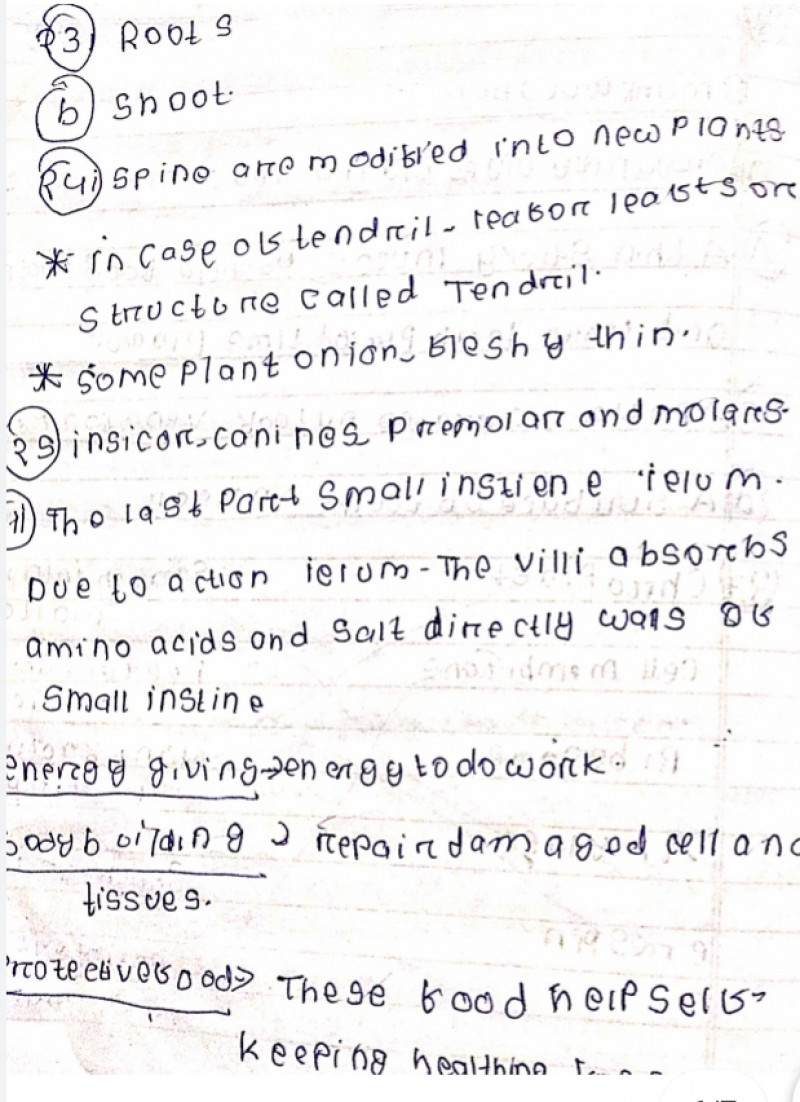 23) Roots
b) Shoot.
24i) Spine are modified into new plants
* in case of tendril - reason leafsts are
structure called Tendril.
* Some plant onion- fleshy thin.
25) insicor, canines premolar and molars.
11) The last Part Small instiene ielum.
Due to action ielum - The villi absorbs
amino acids and Salt directly wals of
Small instine
energy giving → energy to do work.
body bilding → repair damaged cell and
tissues.
Protective foods> These food help self-
keeping